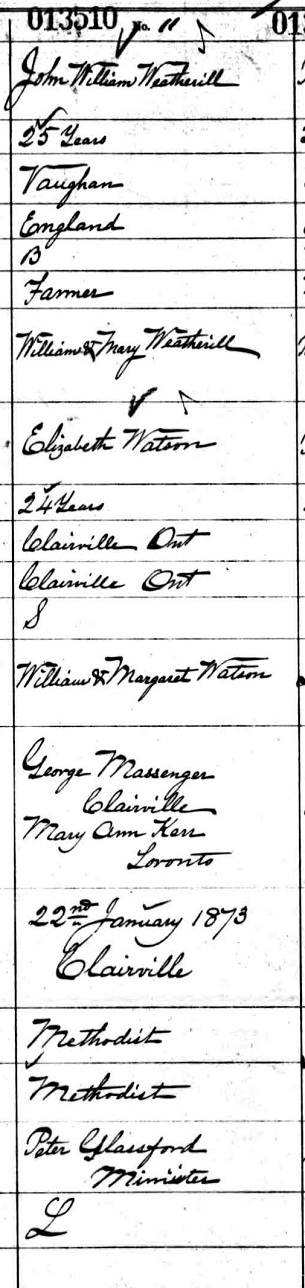 013510 No. 11
John William Weatherill
25 Years
Vaughan
England
B
Farmer
William & Mary Weatherill
Elizabeth Watson
24 Years
Clairville Ont
Clairville Ont
S
William & Margaret Watson
George Massenger
Clairville
Mary Ann Kerr
Toronto
22nd January 1873
Clairville
Methodist
Methodist
Peter Glassford
Minister
L